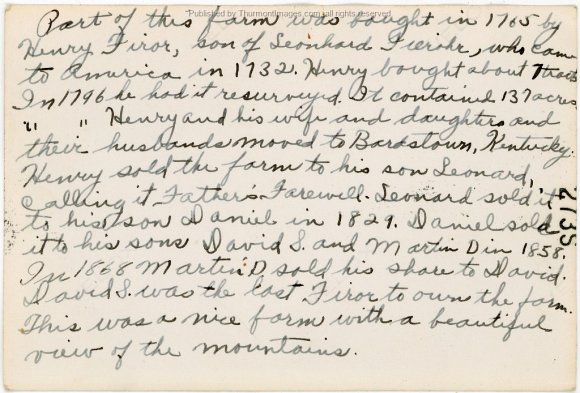 "Published by ThurmontImages.com (all rights reserved
Part of this farm was bought in 1765 by
Henry Firor, son of Leonhard Fierohr, who came
to America in 1732. Henry bought about 7 tracts
In 1796 he had it resurveyed. It contained 137 acres
" " Henry and his wife and daughters and
their husbands moved to Bardstown, Kentucky.
Henry sold the farm to his son Leonard,
calling it Father's Farewell. Leonard sold it
to his son Daniel in 1829. Daniel sold
it to his sons David S. and Martin D in 1858.
In 1868 Martin D. sold his share to David.
David S. was the last Firor to own the farm.
This was a nice farm with a beautiful
view of the mountains.
2135